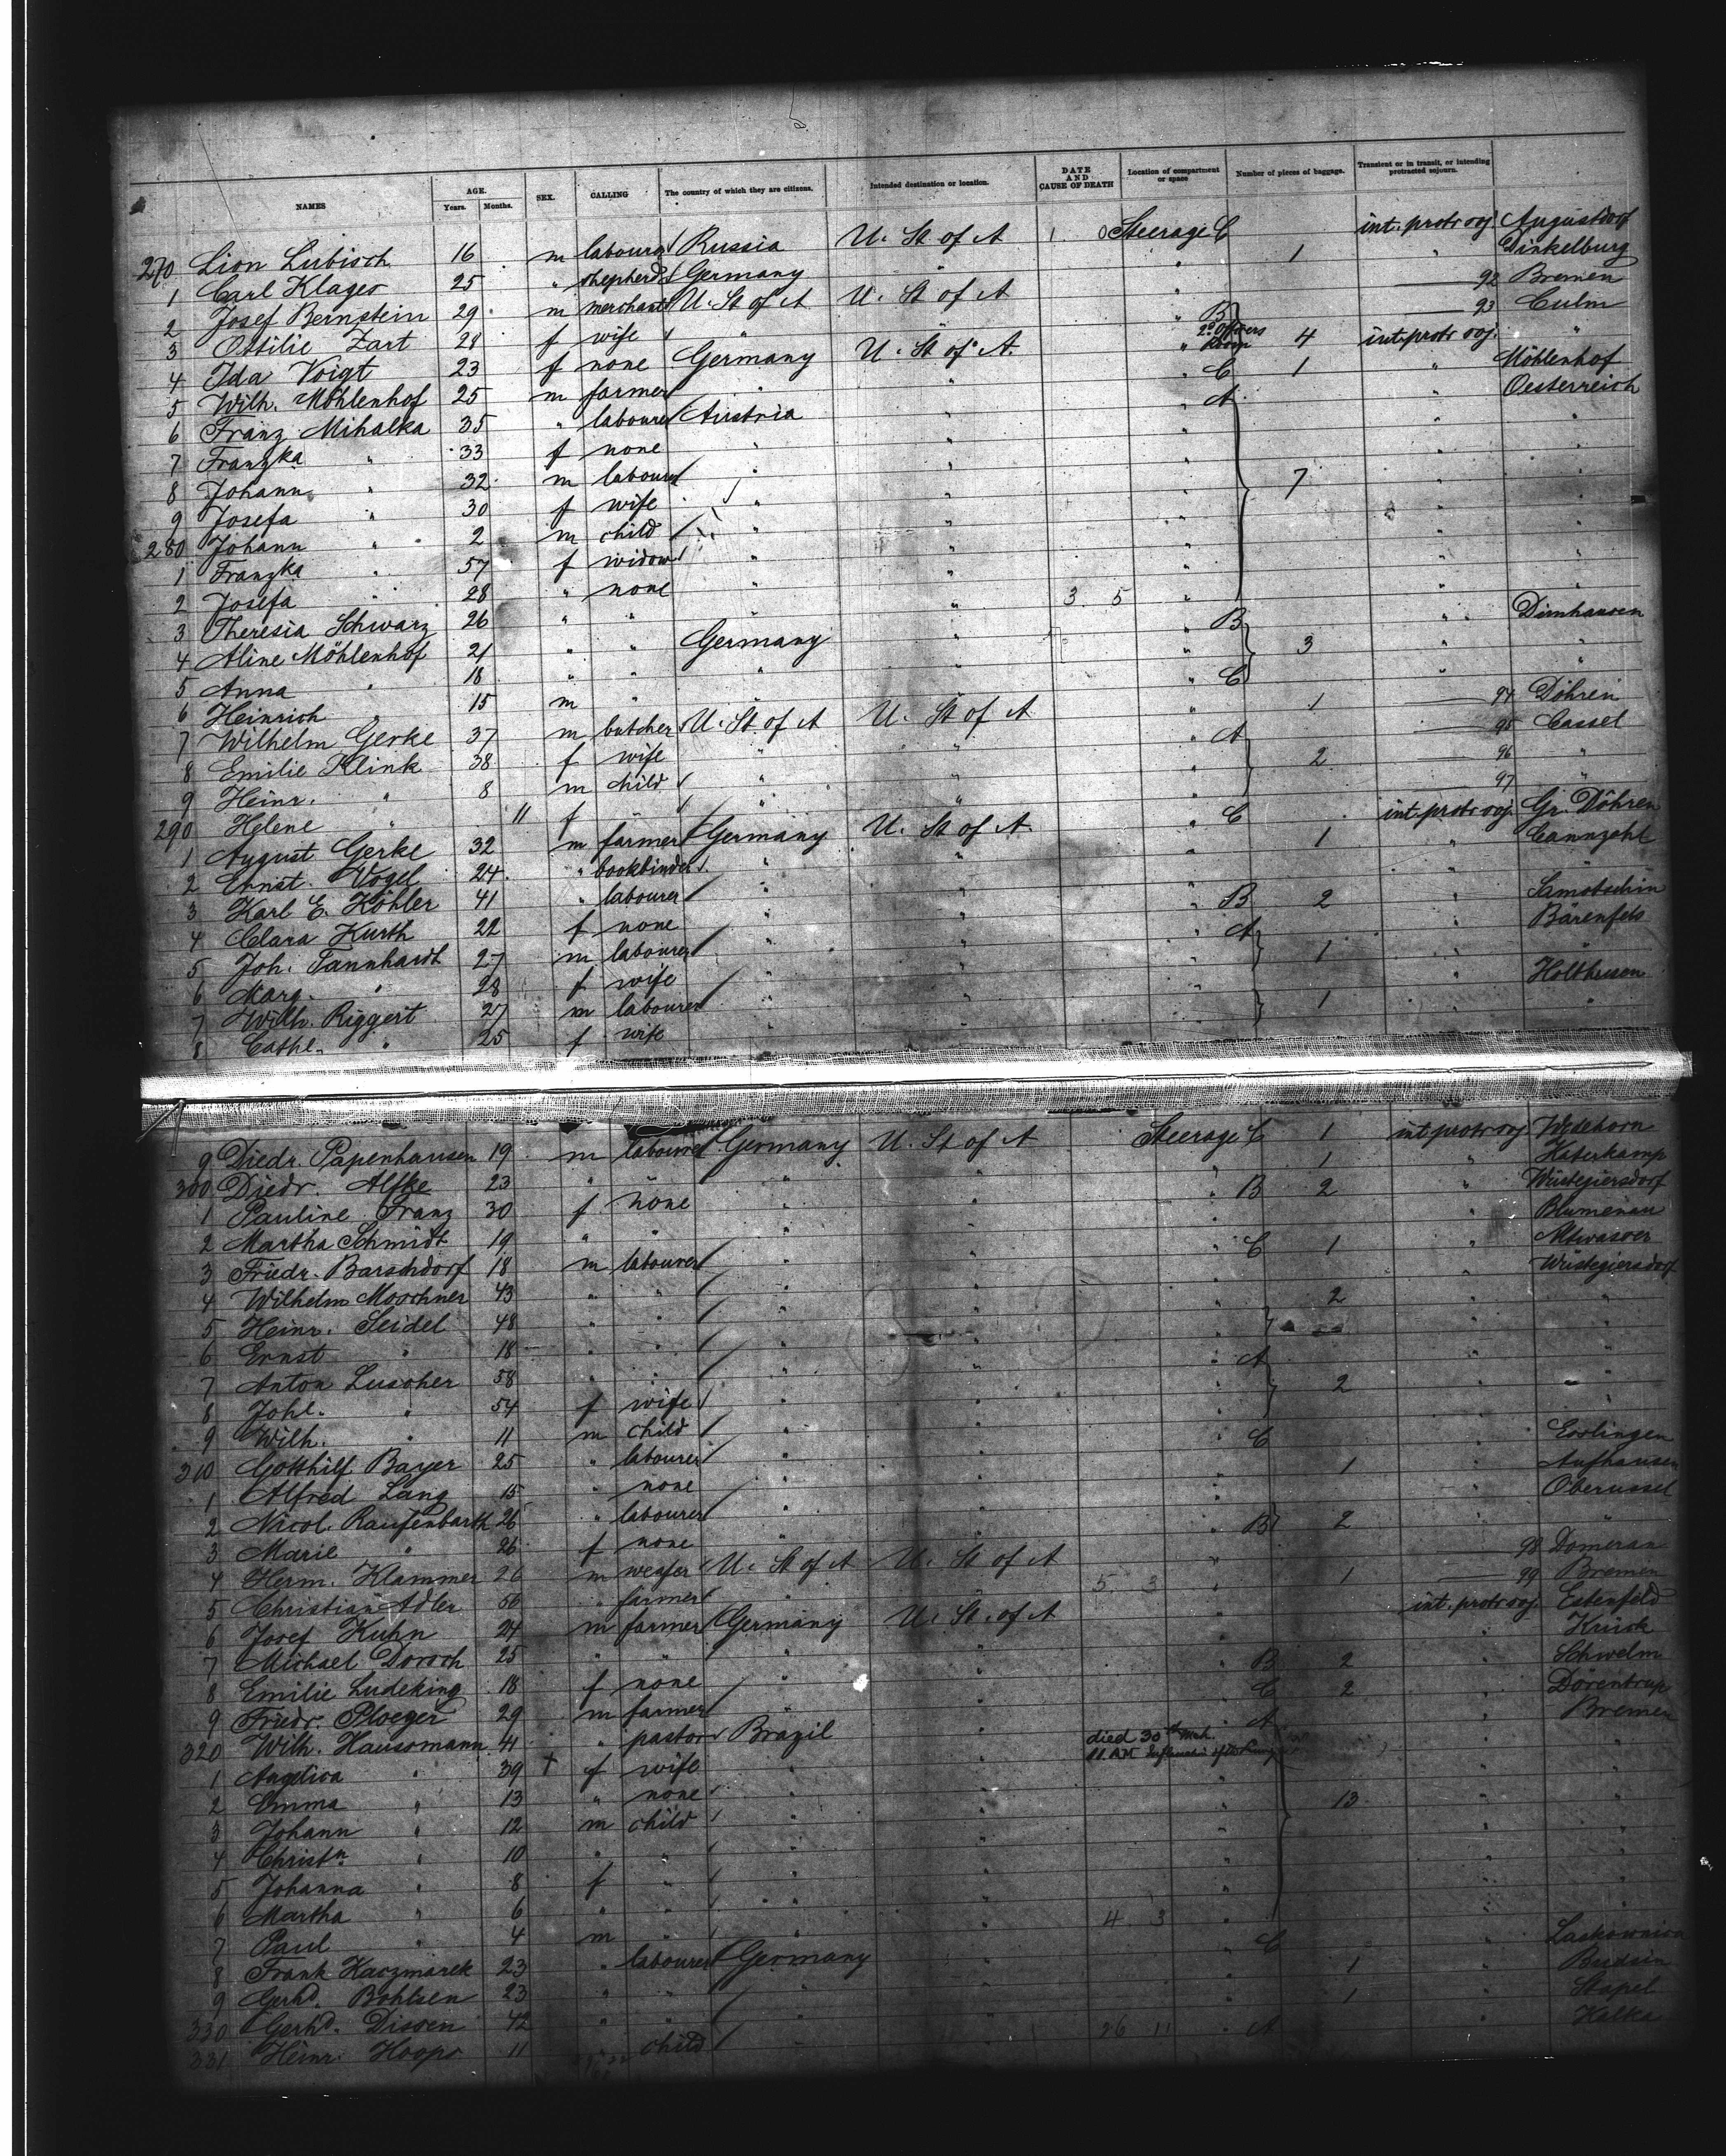 NAMES AGE. Years. Months. SEX. CALLING The country of which they are citizens. Intended destination or location. DATE AND CAUSE OF DEATH Location of compartment or space Number of pieces of baggage. Transient or in transit, or intending protracted sojourn.
270 Lion Lubisch 16 m labourer Russia U. St of A Steerage C int. protr soj. Augustdorf
1 Carl Klages 25 " shepherd Germany " " 1 " Dinkelburg
2 Josef Bernstein 29 m merchant U. St of A U. St of A " 92 Bremen
3 Ottilie Zart 28 f wife " B 93 Culm
4 Ida Voigt 23 f none Germany U. St of A " 2d Officers Room 4 int. protr soj. "
5 Wilh. Möhlenhof 25 m farmer " " " C 1 " Möhlenhof
6 Franz Mihalka 35 " labourer Austria " " A " Oesterreich
7 Franzka " 33 f none " " " " "
8 Johann " 32 m labourer " " " 7 " "
9 Josefa " 30 f wife " " " " "
280 Johann " 2 m child " " " " "
1 Franzka " 57 f widow " " " " "
2 Josefa " 28 " none " " " " "
3 Theresia Schwarz 26 " " " " 3 5 " " "
4 Aline Möhlenhof 21 " " Germany " " B " Dimhausen
5 Anna " 18 " " " " " 3 " "
6 Heinrich " 15 m " " " " C " "
7 Wilhelm Gerke 37 m butcher U. St of A U. St of A " 1 94 Döhren
8 Emilie Klink 38 f wife " " " A 95 Cassel
9 Heinr. " 8 m child " " " 2 96 "
290 Helene " 11 f " " " 97 "
1 August Gerke 32 m farmer Germany U. St of A " C int. protr soj. Gr. Döhren
2 Ernst Vogel 24 " bookbinder " " " 1 " Cannzahl
3 Karl E. Köhler 41 " labourer " " " "
4 Clara Kurth 22 f none " " " B 2 " Samotschin
5 Joh. Tannhardt 27 m labourer " " " A " Bärenfels
6 Marg. " 28 f wife " " 1 " "
7 Wilh. Riggert 27 m labourer " " " Holthusen
8 Cathl. " 25 f wife " " 1 " "
9 Diedr. Papenhausen 19 m labourer Germany U. St of A Steerage C 1 int protr soj Wedehorn
300 Diedr. Alfke 23 " " " " " 1 " Katerkamp
1 Pauline Franz 30 f none " " " B 2 " Wüstegiersdorf
2 Martha Schmidt 19 " " " " " " Blumenau
3 Friedr. Barschdorf 18 m labourer " " " C 1 " Altwasser
4 Wilhelm Moschner 43 " " " " " " Wüstegiersdorf
5 Heinr. Seidel 48 " " " " " 2 " "
6 Ernst " 18 " " " " " " "
7 Anton Luscher 58 " " " " " A " "
8 Johl. " 54 f wife " " " 2 " "
9 Wilh. " 11 m child " " " " "
310 Gotthilf Bayer 25 " labourer " " " C " Esslingen
1 Alfred Lang 15 " none " " " 1 " Aufhausen
2 Nicol. Raufenbarth 26 " labourer " " " " Oberussel
3 Marie " 26 f none " " " B 2 " "
4 Herm. Klammer 26 m weaver U. St of A U. St of A " 98
5 Christian Adler 56 " farmer 5 3 " 1 99 Bremen
6 Josef Kuhn 24 m farmer Germany U. St. of A " int. protr soj. Estenfeld
7 Michael Dorsch 25 " " " " " Krück
8 Emilie Ludeking 18 f none " " " B 2 " Schwelm
9 Friedr. Ploeger 29 m farmer " " " C 2 " Dörentrup
320 Wilh. Haussmann 41 " pastor Brazil " A " Bremen
1 Angelica " 39 † f wife " " died 30th Mch. 11 AM " "
2 Emma " 13 " none " " " " "
3 Johann " 12 m child " " " 13 " "
4 Christn " 10 " " " " " " "
5 Johanna " 8 f " " " " " "
6 Martha " 6 " " " " " " "
7 Paul " 4 m " " " 4 3 " " "
8 Frank Kaczmarek 23 " labourer Germany " " C "
9 Gerhd. Bohlsen 23 " " " " " 1 " Budsin
330 Gerhd. Dissen 42 " " " " " 1 " Stapel
331 Heinr. Hoops 11 " child " " 26 11 " A " Kalka